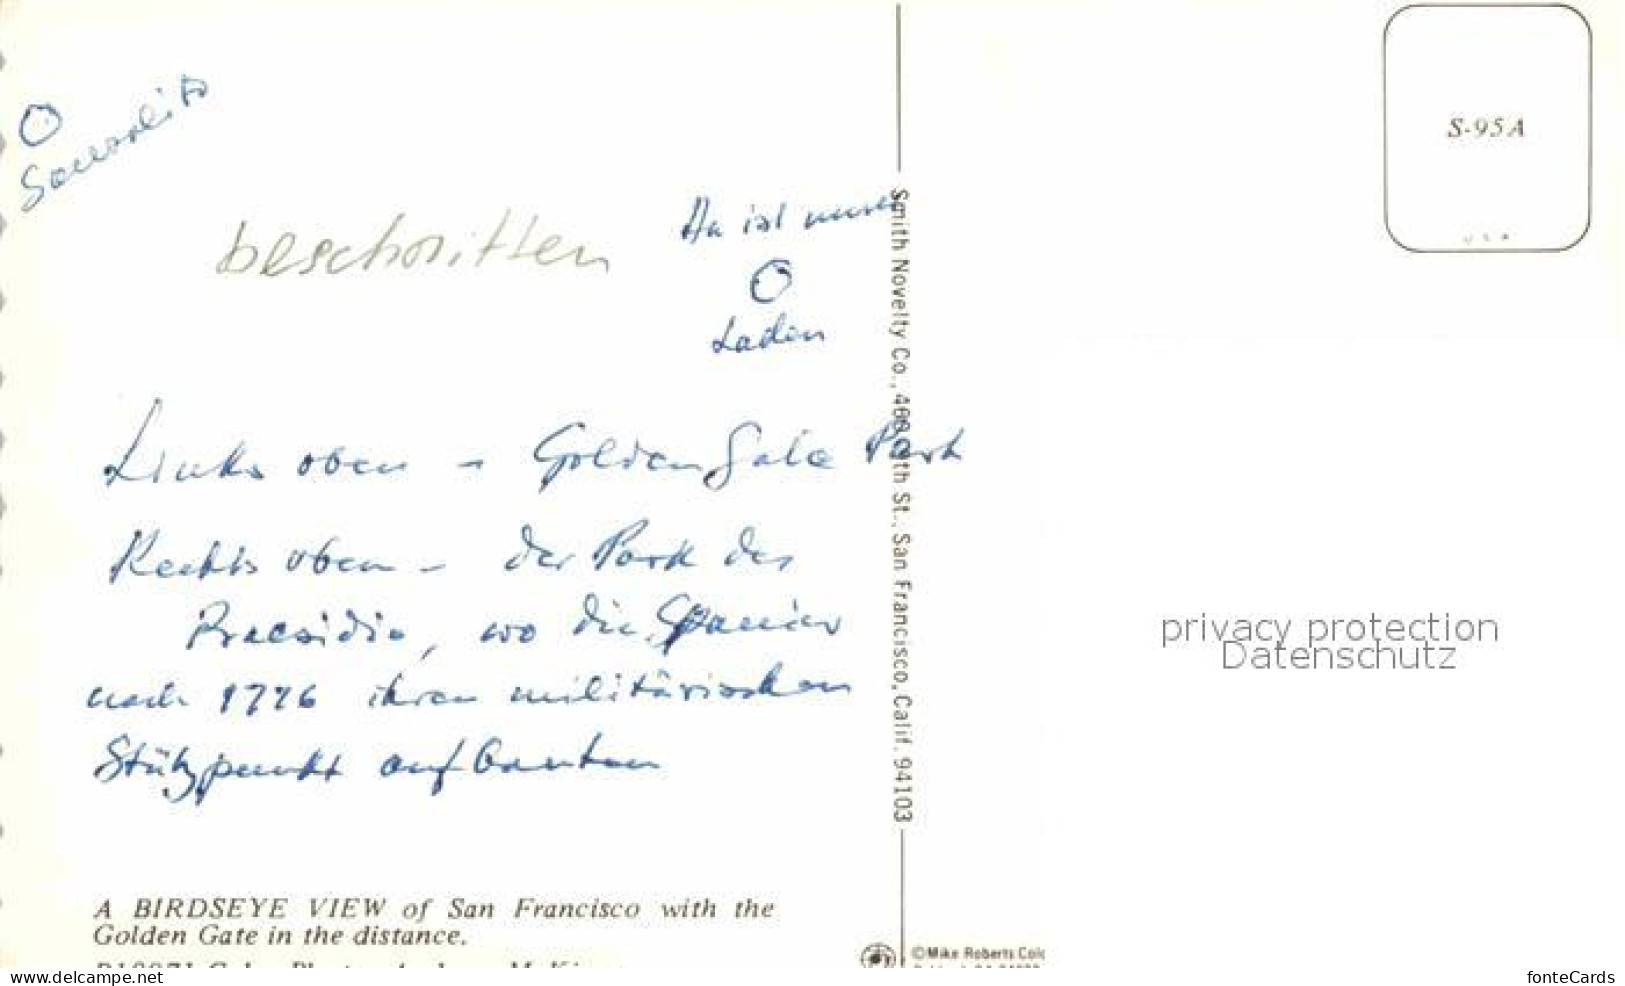 O
Sausalito
beschritten
Da ist unser
O
Laden
Links oben - Golden Gate Park
Rechts oben - der Park des
Praesidio, wo die Spanier
nach 1776 ihren militärischen
Stützpunkt aufbauten
A BIRDSEYE VIEW of San Francisco with the
Golden Gate in the distance.
Smith Novelty Co., 460 9th St., San Francisco, Calif. 94103
©Mike Roberts Colo
S-95A
USA
privacy protection
Datenschutz
www.ansichtskarten-center.de
fonteCards